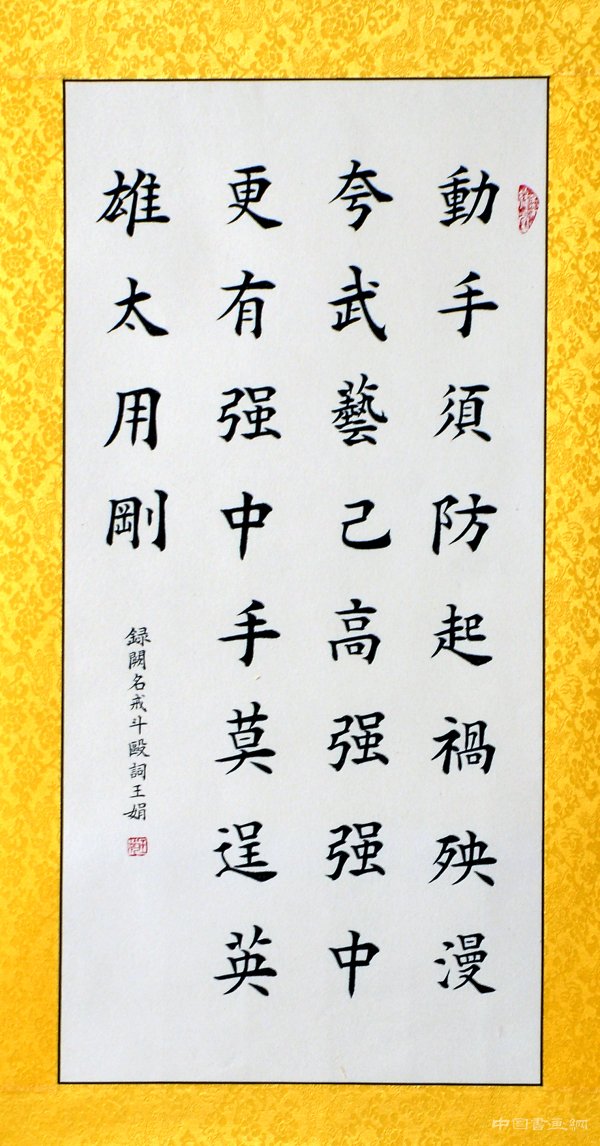 動手須防起禍殃漫
夸武藝己高强强中
更有强中手莫逞英
雄太用剛
録闕名戒斗毆詞王娟
中国書画網